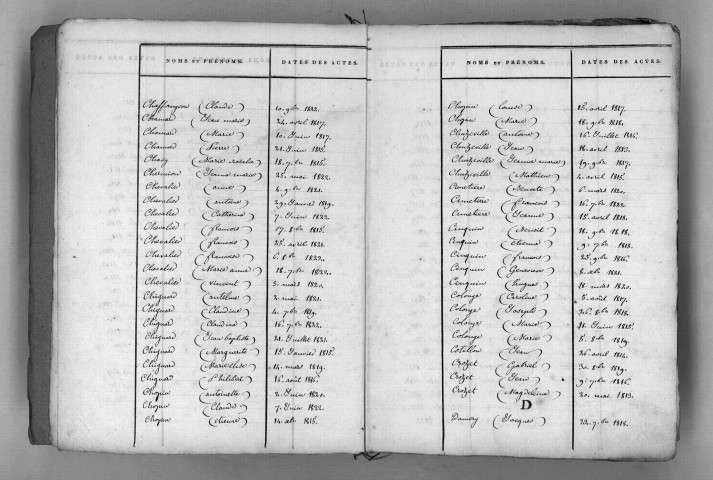 NOMS ET PRÉNOMS. DATES DES ACTES.
Chaffangeon (Claude) 10. 9bre 1822.
Chamard (Jean marie) 24. avril 1817.
Chamard (Marie) 10. Juin 1817.
Chamard (Pierre) 21. Juin 1818.
Chary (Marie rosalie) 18. 7bre 1816.
Charmion (Jeanne marie) 25. mai 1822.
Chevalier (anne) 4. 9bre 1821.
Chevalier (antoine) 29. Janvier 1819.
Chevalier (Catherine) 7. Juin 1822.
Chevalier (françois) 17. 8bre 1815.
Chevalier (françois) 25. avril 1821.
Chevalier (françoise) 6. 8bre 1822.
Chevalier (Marie anne) 18. 7bre 1822.
Chevalier (vincent) 3. mars 1820.
Chignard (anthelme) 2. mai 1821.
Chignard (Claudine) 4. 7bre 1819.
Chignard (Claudine) 16. 7bre 1822.
Chignard (Jean baptiste) 24. Juillet 1821.
Chignard (Marguerite) 15. Janvier 1815.
Chignard (Marie elise) 14. mars 1819.
Chignard (Philibert) 16. août 1816.
Chopin (antoinette) 2. Juin 1820.
Chopin (Claude) 7. Juin 1822.
Chopin (étienne) 14. xbre 1815.
NOMS ET PRÉNOMS. DATES DES ACTES.
Chopin (Louise) 15. avril 1817.
Chopin (Marie) 18. 9bre 1818.
Chuzeville (antoine) 16. Juillet 1816.
Chuzeville (Jean) 18. avril 1813.
Chuzeville (Jeanne marie) 19. 9bre 1817.
Chuzeville (Mathieu) 4. avril 1815.
Cimetière (Benoite) 6. mars 1820.
Cimetière (francois) 16. 7bre 1822
Cimetière (Jeanne) 15. avril 1818.
Cinquin (Benoit) 18. 9bre 1818.
Cinquin (étienne) 9. 7bre 1818.
Cinquin (francois) 25. 9bre 1816.
Cinquin (Genevieve) 8. xbre 1821.
Cinquin (hugues) 18. mars 1820.
Colonge (Caroline) 5. août 1817.
Colonge (Joseph) 26. 8bre 1818.
Colonge (Marie) 21. Juin 1815.
Colonge (Marie) 5. 8bre 1819.
Cotillon (Jean) 26. avril 1814.
Crozet (Gabriel) 30. 8bre 1819.
Crozet (Jean) 9. 7bre 1816.
Crozet (Magdelaine) 20. mai 1813.
D
Damery (Jacques) 23. 7bre 1818.